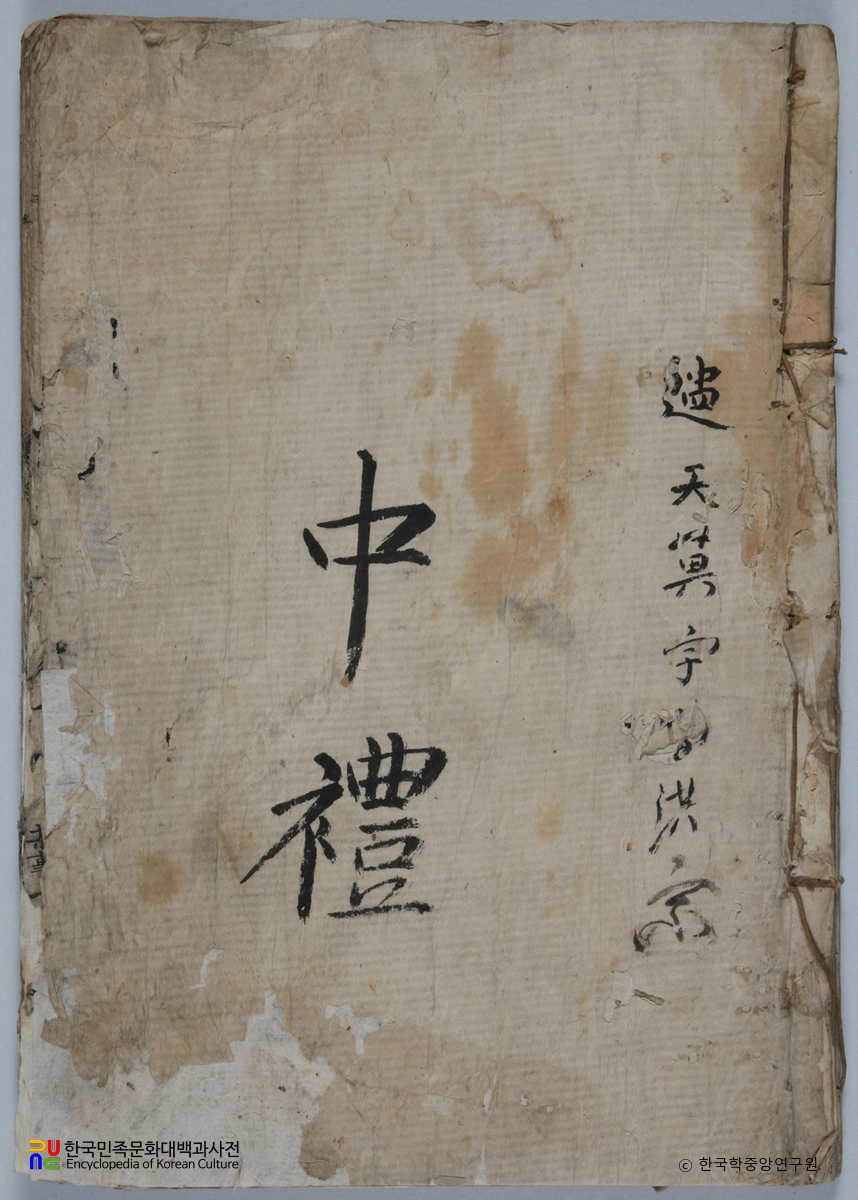 天箕字
洪宗
中禮
한국민족문화대백과사전
Encyclopedia of Korean Culture
© 한국학중앙연구원